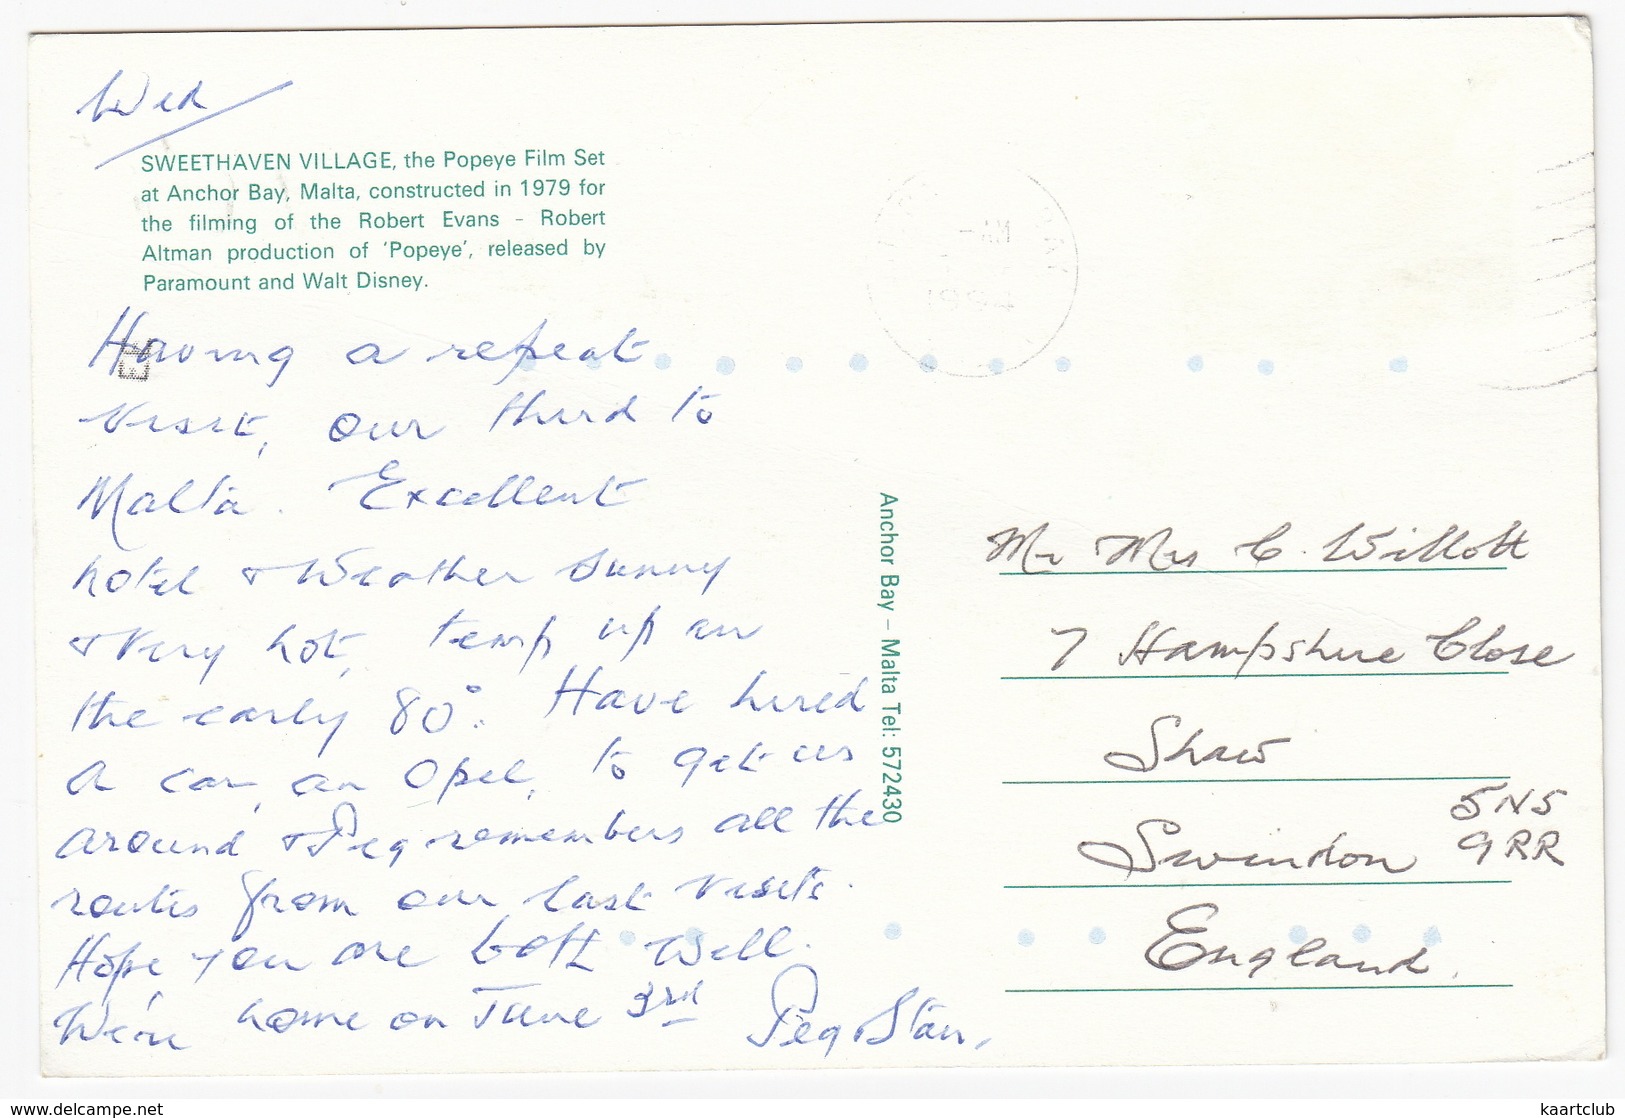 Wed
SWEETHAVEN VILLAGE, the Popeye Film Set
at Anchor Bay, Malta, constructed in 1979 for
the filming of the Robert Evans – Robert
Altman production of 'Popeye', released by
Paramount and Walt Disney.
Having a repeat
visit, our third to
Malta. Excellent
hotel & Weather sunny
& very hot, temp up in
the early 80°. Have hired
a car, an Opel, to get us
around & Peg remembers all the
routes from our last visits.
Hope you are both well.
We're home on June 3rd
Peg & Stan,
Anchor Bay – Malta Tel: 572430
Mr Mrs C. Willott
7 Hampshire Close
Shaw
Swindon
SN5
9RR
England.
www.delcampe.net
kaartclub